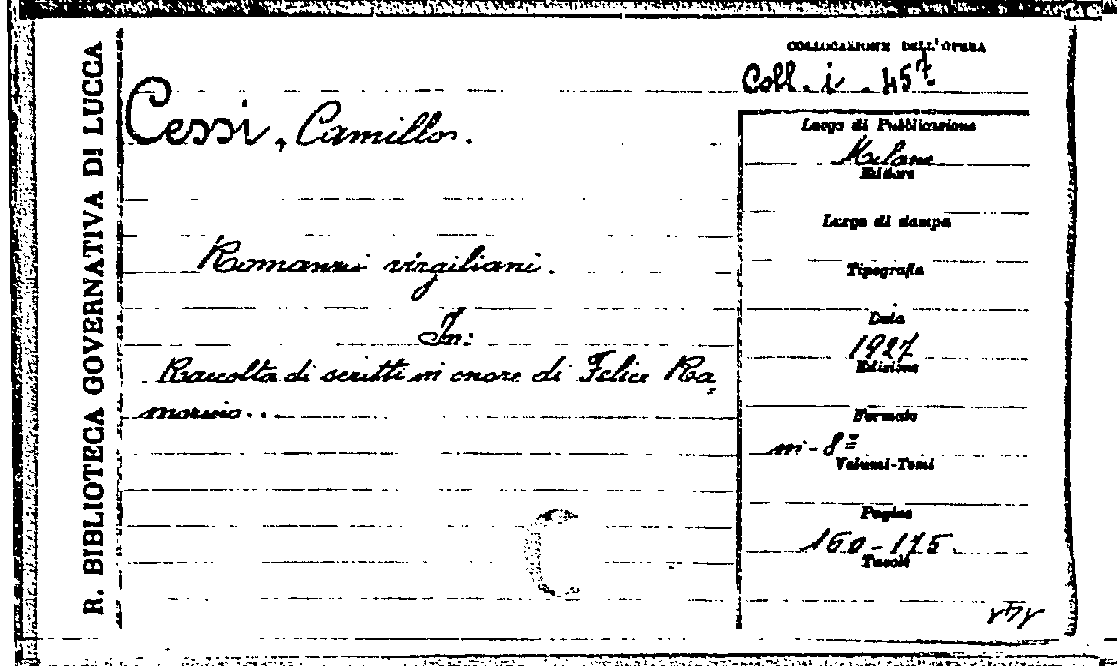 R. BIBLIOTECA GOVERNATIVA DI LUCCA
COLLOCAZIONE DELL'OPERA
Coll. i. 457
Cessi, Camillo.
Romanzi virgiliani.
In:
Raccolta di scritti in onore di Felice Ra,
morino..
Luogo di Pubblicazione
Milano
Editore
Luogo di stampa
Tipografia
Data
1927
Edizione
Formato
in-8º
Volumi-Tomi
Pagine
160-175.
Tavole